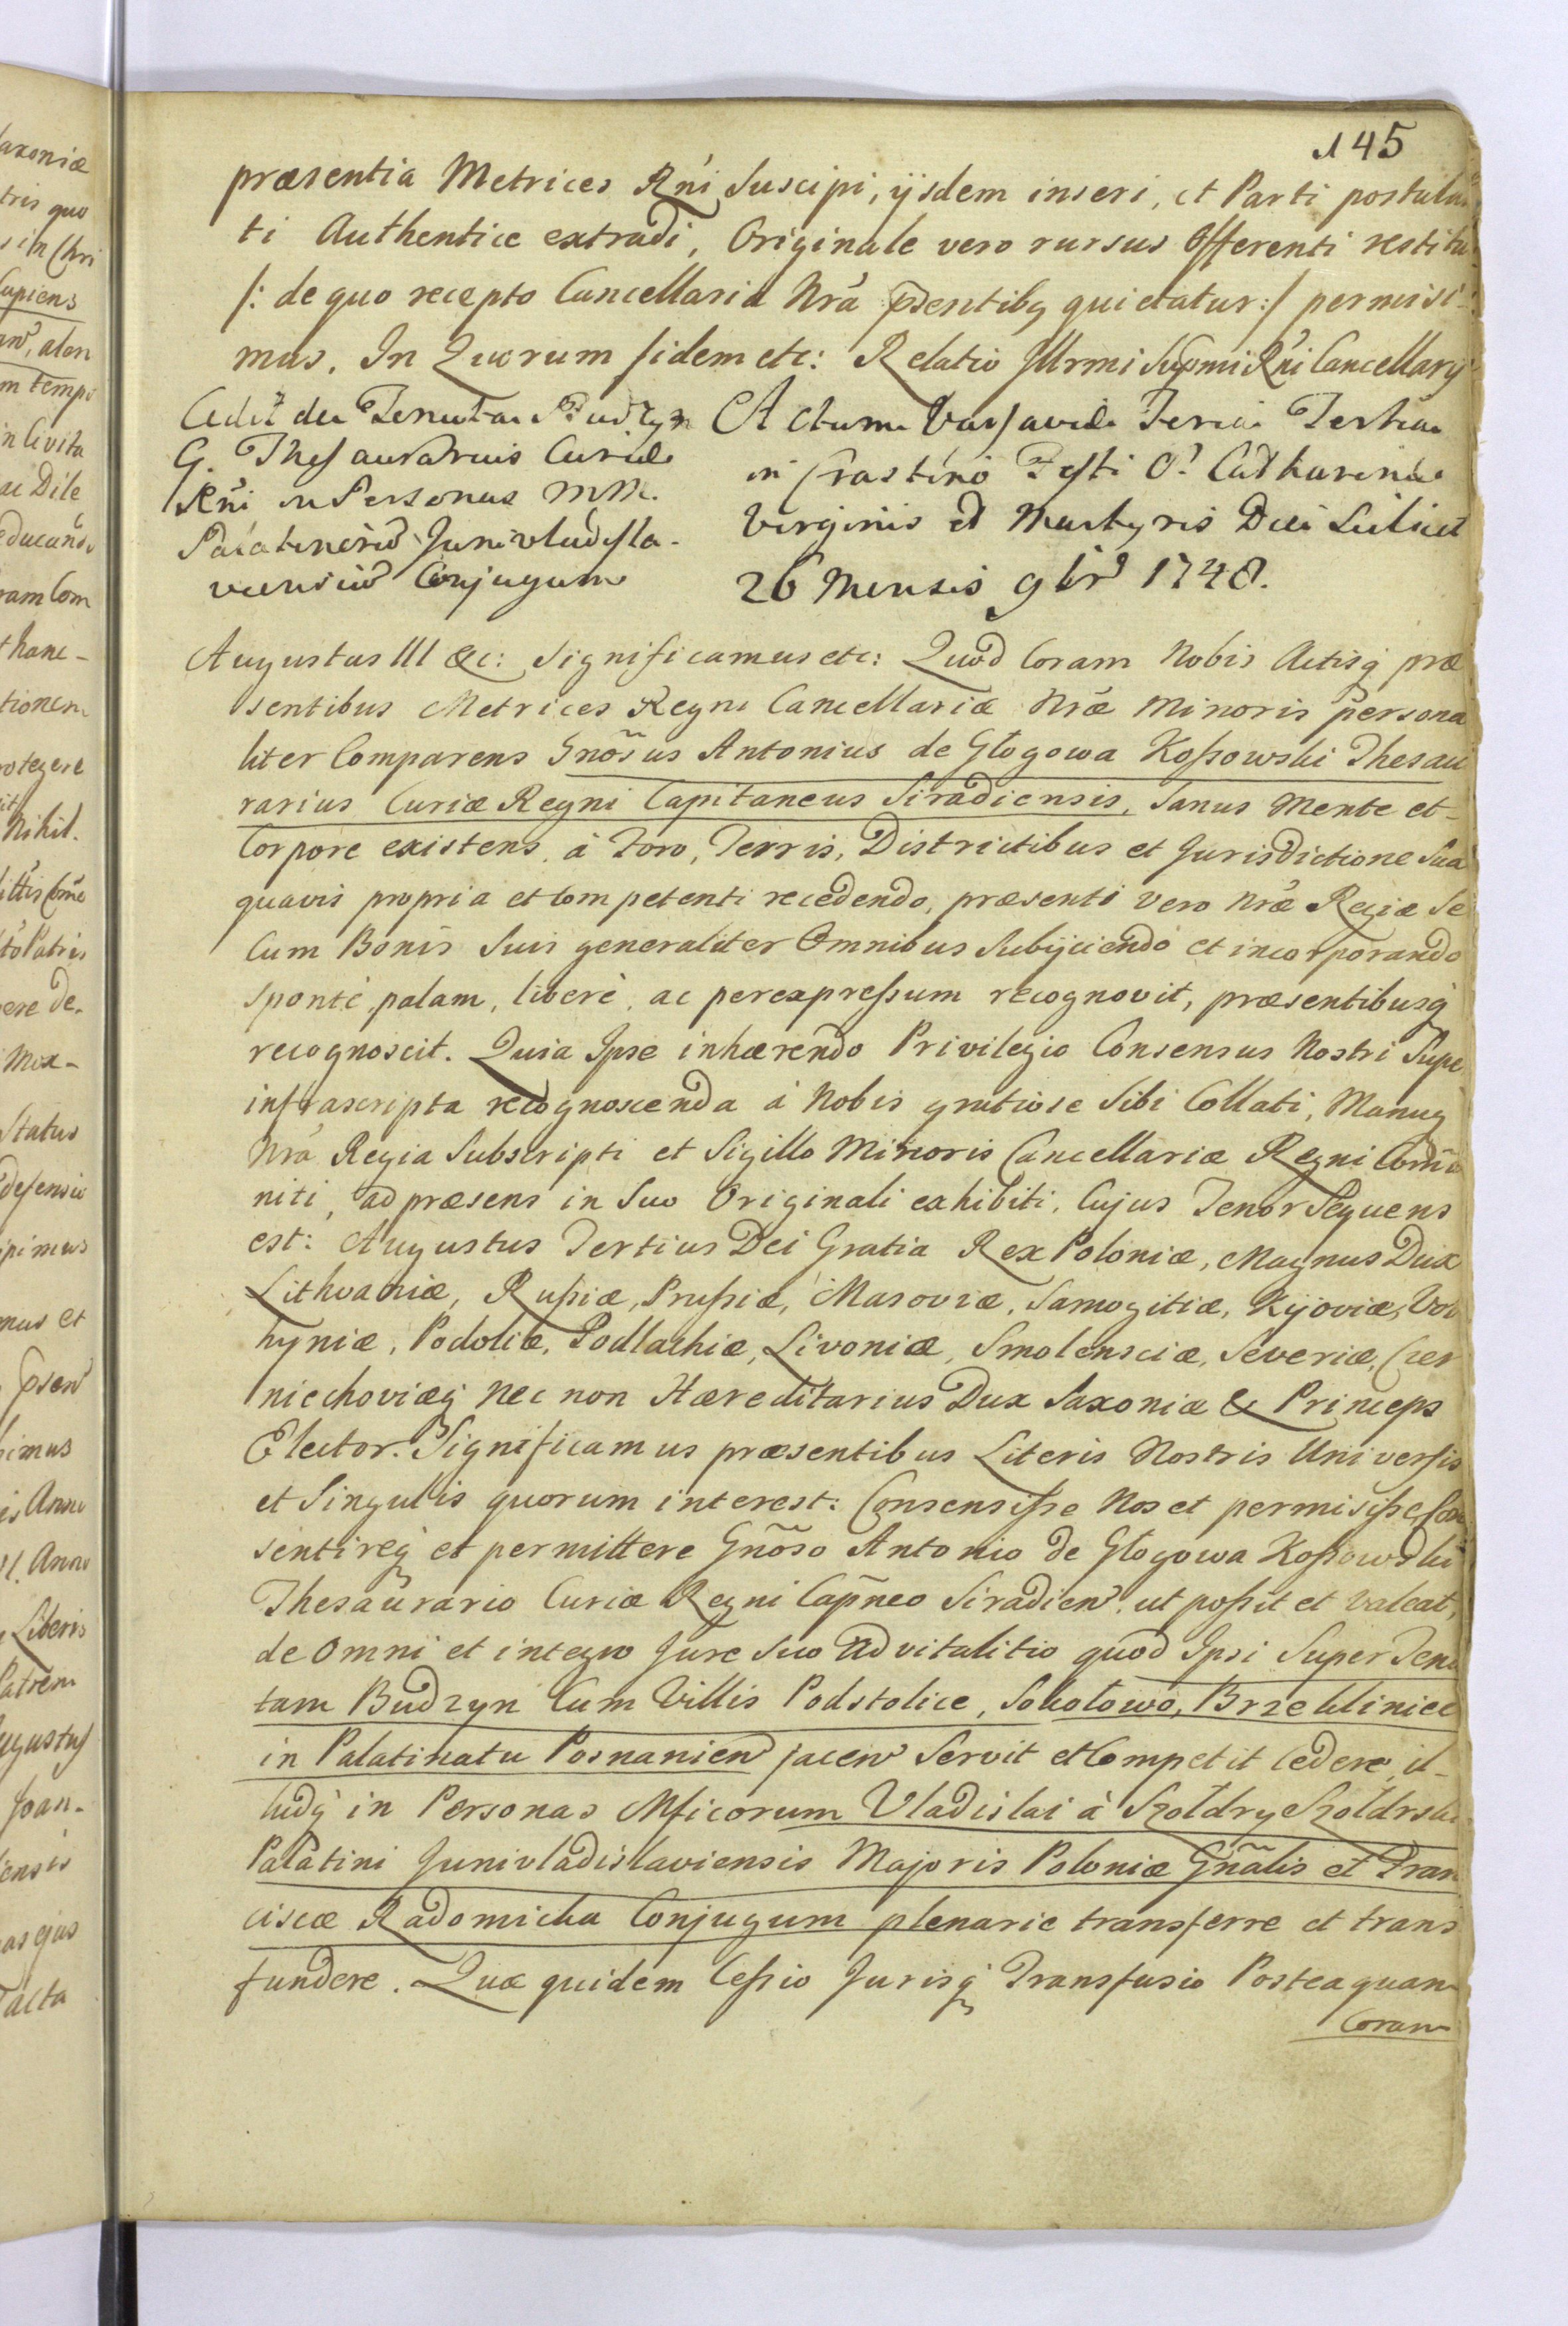 145
præsentia Metrices Rńi Suscipi, ijsdem inseri, et Parti postulan
ti Authentice extradi, Originale vero rursus Offerenti restitu
/: de quo recepto Cancellaria Nrá p̃sentibq quietatur :/ permisi-
mus. In Quorum fidem etc: Relatio Illrmi Supmi Rńi Cancellarij
Cedit de Tenuta Budzyn
G. Thesaurarius Curiæ
Rńi in Personas MM.
Palatinorũ Junivladisla-
viensiũ Conjugum
Actum Varsaviæ Feria Tertia
in Crastino Festi S. Catharinæ
Virginis et Martyris Die Scilicet
26 Mensis 9brȋ 1748.
Augustus III &c: Significamus etc: Quod Coram Nobis Actisq præ
sentibus Metrices Regni Cancellariæ Nræ Minoris persona
liter Comparens Gnõsus Antonius de Głogowa Koßowski Thesau
rarius Curiæ Regni Capitaneus Siradiensis, Sanus Mente et
Corpore existens, à Foro, Terris, Districtibus et Jurisdictione Sua
quavis propria et Competenti recedendo, præsenti vero Nræ Regiæ Se
Cum Bonis Suis generaliter Omnibus Subijciendo et incorporando
Sponte, palam, liberè, ac perexpreßum recognovit, præsentibusq
recognoscit. Quia Ipse inhærendo Privilegio Consensus Nostri Supe
infrascripta recognoscenda à Nobis gratiose Sibi Collati, Manuq
Nrá Regia Subscripti et Sigillo Minoris Cancellariæ Regni Com̃u
niti, ad præsens in Suo Originali exhibiti, Cujus Tenor Sequens
est: Augustus Tertius Dei Gratia Rex Poloniæ, Magnus Dux
Lithvaniæ, Rußiæ, Prußiæ, Masoviæ, Samogitiæ, Kijoviæ, Vol
hyniæ, Podoliæ, Podlachiæ, Livoniæ, Smolensciæ, Severiæ, Czer
niechoviæq nec non Hæreditarius Dux Saxoniæ & Princeps
Elector. Significamus præsentibus Literis Nostris Universis
et Singulis quorum interest: Consensiße Nos et permisiße, Con
sentireq et permittere Gnõso Antonio de Głogowa Koßowski
Thesaurario Curiæ Regni Cap̃neo Siradien̄, ut poßit et valeat,
de Omni et integro Jure Suo Advitalitio quod Ipsi Super Tenu
tam Budzyn Cum Villis Podstolice, Sokołowo, Brzekliniec
in Palatinatu Posnanien̄ jacen̄ Servit et Competit Cedere, il-
ludq in Personas Mficorum Vladislai à Szołdry Szołdrski
Palatini Junivladislaviensis Majoris Poloniæ Gñalis et Fran
ciscæ Radomicka Conjugum plenarie transferre et trans
fundere. Quæ quidem Ceßio Jurisq Transfusio Posteaquam
Coram